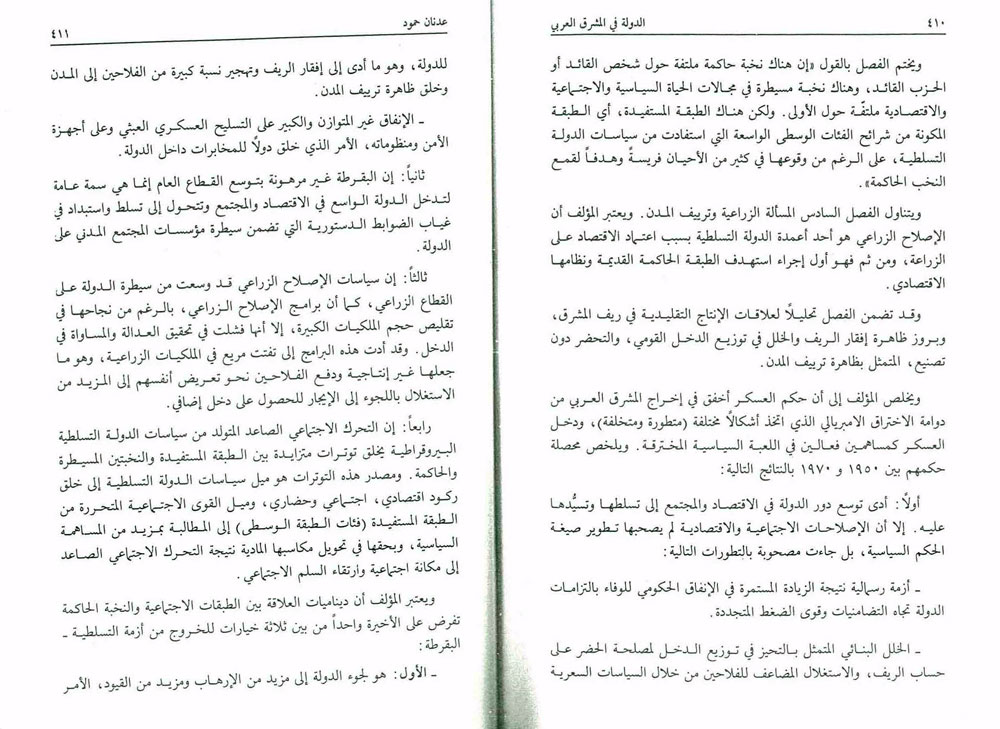 ٤١٠
الدولة في المشرق العربي
ويختم الفصل بالقول «إن هناك نخبة حاكمة ملتفة حول شخص القائد أو
الحزب القائد، وهناك نخبة مسيطرة في مجالات الحياة السياسية والاجتماعية
والاقتصادية ملتفّة حول الأولى. ولكن هناك الطبقة المستفيدة، أي الطبقة
المكونة من شرائح الفئات الوسطى الواسعة التي استفادت من سياسات الدولة
التسلطية، على الرغم من وقوعها في كثير من الأحيان فريسةً وهدفاً لقمع
النخب الحاكمة».
ويتناول الفصل السادس المسألة الزراعية وترييف المدن. ويعتبر المؤلف أن
الإصلاح الزراعي هو أحد أعمدة الدولة التسلطية بسبب اعتماد الاقتصاد على
الزراعة، ومن ثم فهو أول إجراء استهدف الطبقة الحاكمة القديمة ونظامها
الاقتصادي.
وقد تضمن الفصل تحليلًا لعلاقات الإنتاج التقليدية في ريف المشرق،
وبروز ظاهرة إفقار الريف والخلل في توزيع الدخل القومي، والتحضر دون
تصنيع، المتمثل بظاهرة ترييف المدن.
ويخلص المؤلف إلى أن حكم العسكر أخفق في إخراج المشرق العربي من
دوامة الاختراق الامبريالي الذي اتخذ أشكالًا مختلفة (متطورة ومتخلفة)، ودخل
العسكر كمساهمين فعالين في اللعبة السياسية المخترقة. ويلخص محصلة
حكمهم بين ١٩٥٠ و ١٩٧٠ بالنتائج التالية:
أولًا: أدى توسع دور الدولة في الاقتصاد والمجتمع إلى تسلطها وتسيُّدها
عليه. إلا أن الإصلاحات الاجتماعية والاقتصادية لم يصحبها تطوير صيغة
الحكم السياسية، بل جاءت مصحوبة بالتطورات التالية:
ـ أزمة رسمالية نتيجة الزيادة المستمرة في الإنفاق الحكومي للوفاء بالتزامات
الدولة تجاه التضامنيات وقوى الضغط المتجددة.
ـ الخلل البنائي المتمثل بالتحيز في توزيع الدخل لمصلحة الحضر على
حساب الريف، والاستغلال المضاعف للفلاحين من خلال السياسات السعرية
عدنان حمود
٤١١
للدولة، وهو ما أدى إلى إفقار الريف وتهجير نسبة كبيرة من الفلاحين إلى المدن
وخلق ظاهرة ترييف المدن.
ـ الإنفاق غير المتوازن والكبير على التسليح العسكري العبثي وعلى أجهزة
الأمن ومنظوماته، الأمر الذي خلق دولًا للمخابرات داخل الدولة.
ثانياً: إن البقرطة غير مرهونة بتوسع القطاع العام إنما هي سمة عامة
لتدخل الدولة الواسع في الاقتصاد والمجتمع وتتحول إلى تسلط واستبداد في
غياب الضوابط الدستورية التي تضمن سيطرة مؤسسات المجتمع المدني على
الدولة.
ثالثاً: إن سياسات الإصلاح الزراعي قد وسعت من سيطرة الدولة على
القطاع الزراعي، كما أن برامج الإصلاح الزراعي، بالرغم من نجاحها في
تقليص حجم الملكيات الكبيرة، إلا أنها فشلت في تحقيق العدالة والمساواة في
الدخل. وقد أدت هذه البرامج إلى تفتت مريع في الملكيات الزراعية، وهو ما
جعلها غير إنتاجية ودفع الفلاحين نحو تعريض أنفسهم إلى المزيد من
الاستغلال باللجوء إلى الإيجار للحصول على دخل إضافي.
رابعاً: إن التحرك الاجتماعي الصاعد المتولد من سياسات الدولة التسلطية
البيروقراطية يخلق توترات متزايدة بين الطبقة المستفيدة والنخبتين المسيطرة
والحاكمة. ومصدر هذه التوترات هو ميل سياسات الدولة التسلطية إلى خلق
ركود اقتصادي، اجتماعي وحضاري، وميل القوى الاجتماعية المتحررة من
الطبقة المستفيدة (فئات الطبقة الوسطى) إلى المطالبة بمزيد من المساهمة
السياسية، وبحقها في تحويل مكاسبها المادية نتيجة التحرك الاجتماعي الصاعد
إلى مكانة اجتماعية وارتقاء السلم الاجتماعي.
ويعتبر المؤلف أن ديناميات العلاقة بين الطبقات الاجتماعية والنخبة الحاكمة
تفرض على الأخيرة واحداً من بين ثلاثة خيارات للخروج من أزمة التسلطية ـ
البقرطة:
ـ الأول: هو لجوء الدولة إلى مزيد من الإرهاب ومزيد من القيود، الأمر